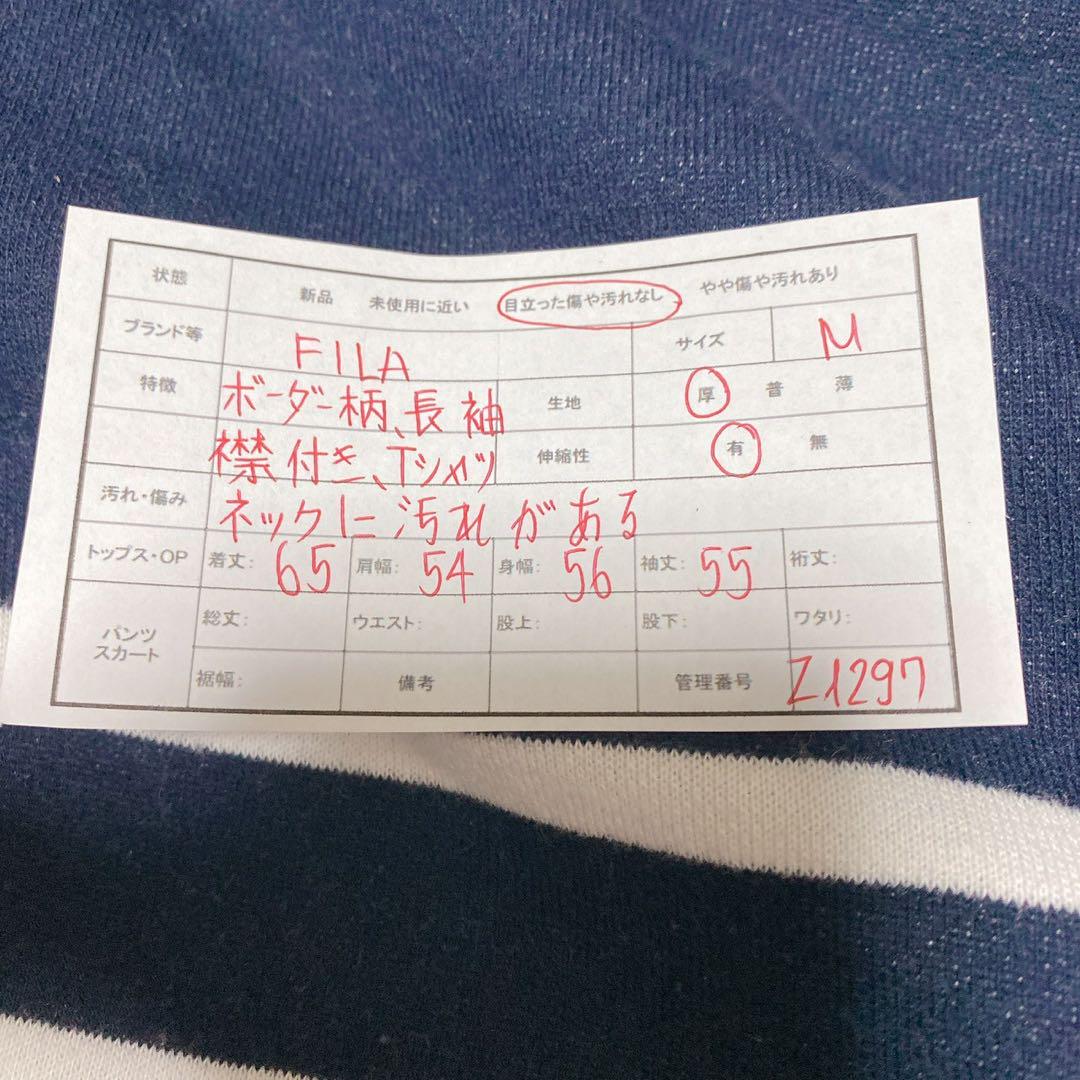 状態 新品 未使用に近い 目立った傷や汚れなし やや傷や汚れあり
ブランド等 FILA サイズ M
特徴 ボーダー柄、長袖 生地 厚 普 薄
襟付き、Tシャツ 伸縮性 有 無
汚れ・傷み ネックに汚れがある
トップス・OP 着丈: 65 肩幅: 54 身幅: 56 袖丈: 55 裄丈:
パンツ
スカート
総丈: ウエスト: 股上: 股下: ワタリ:
裾幅: 備考 管理番号 Z1297